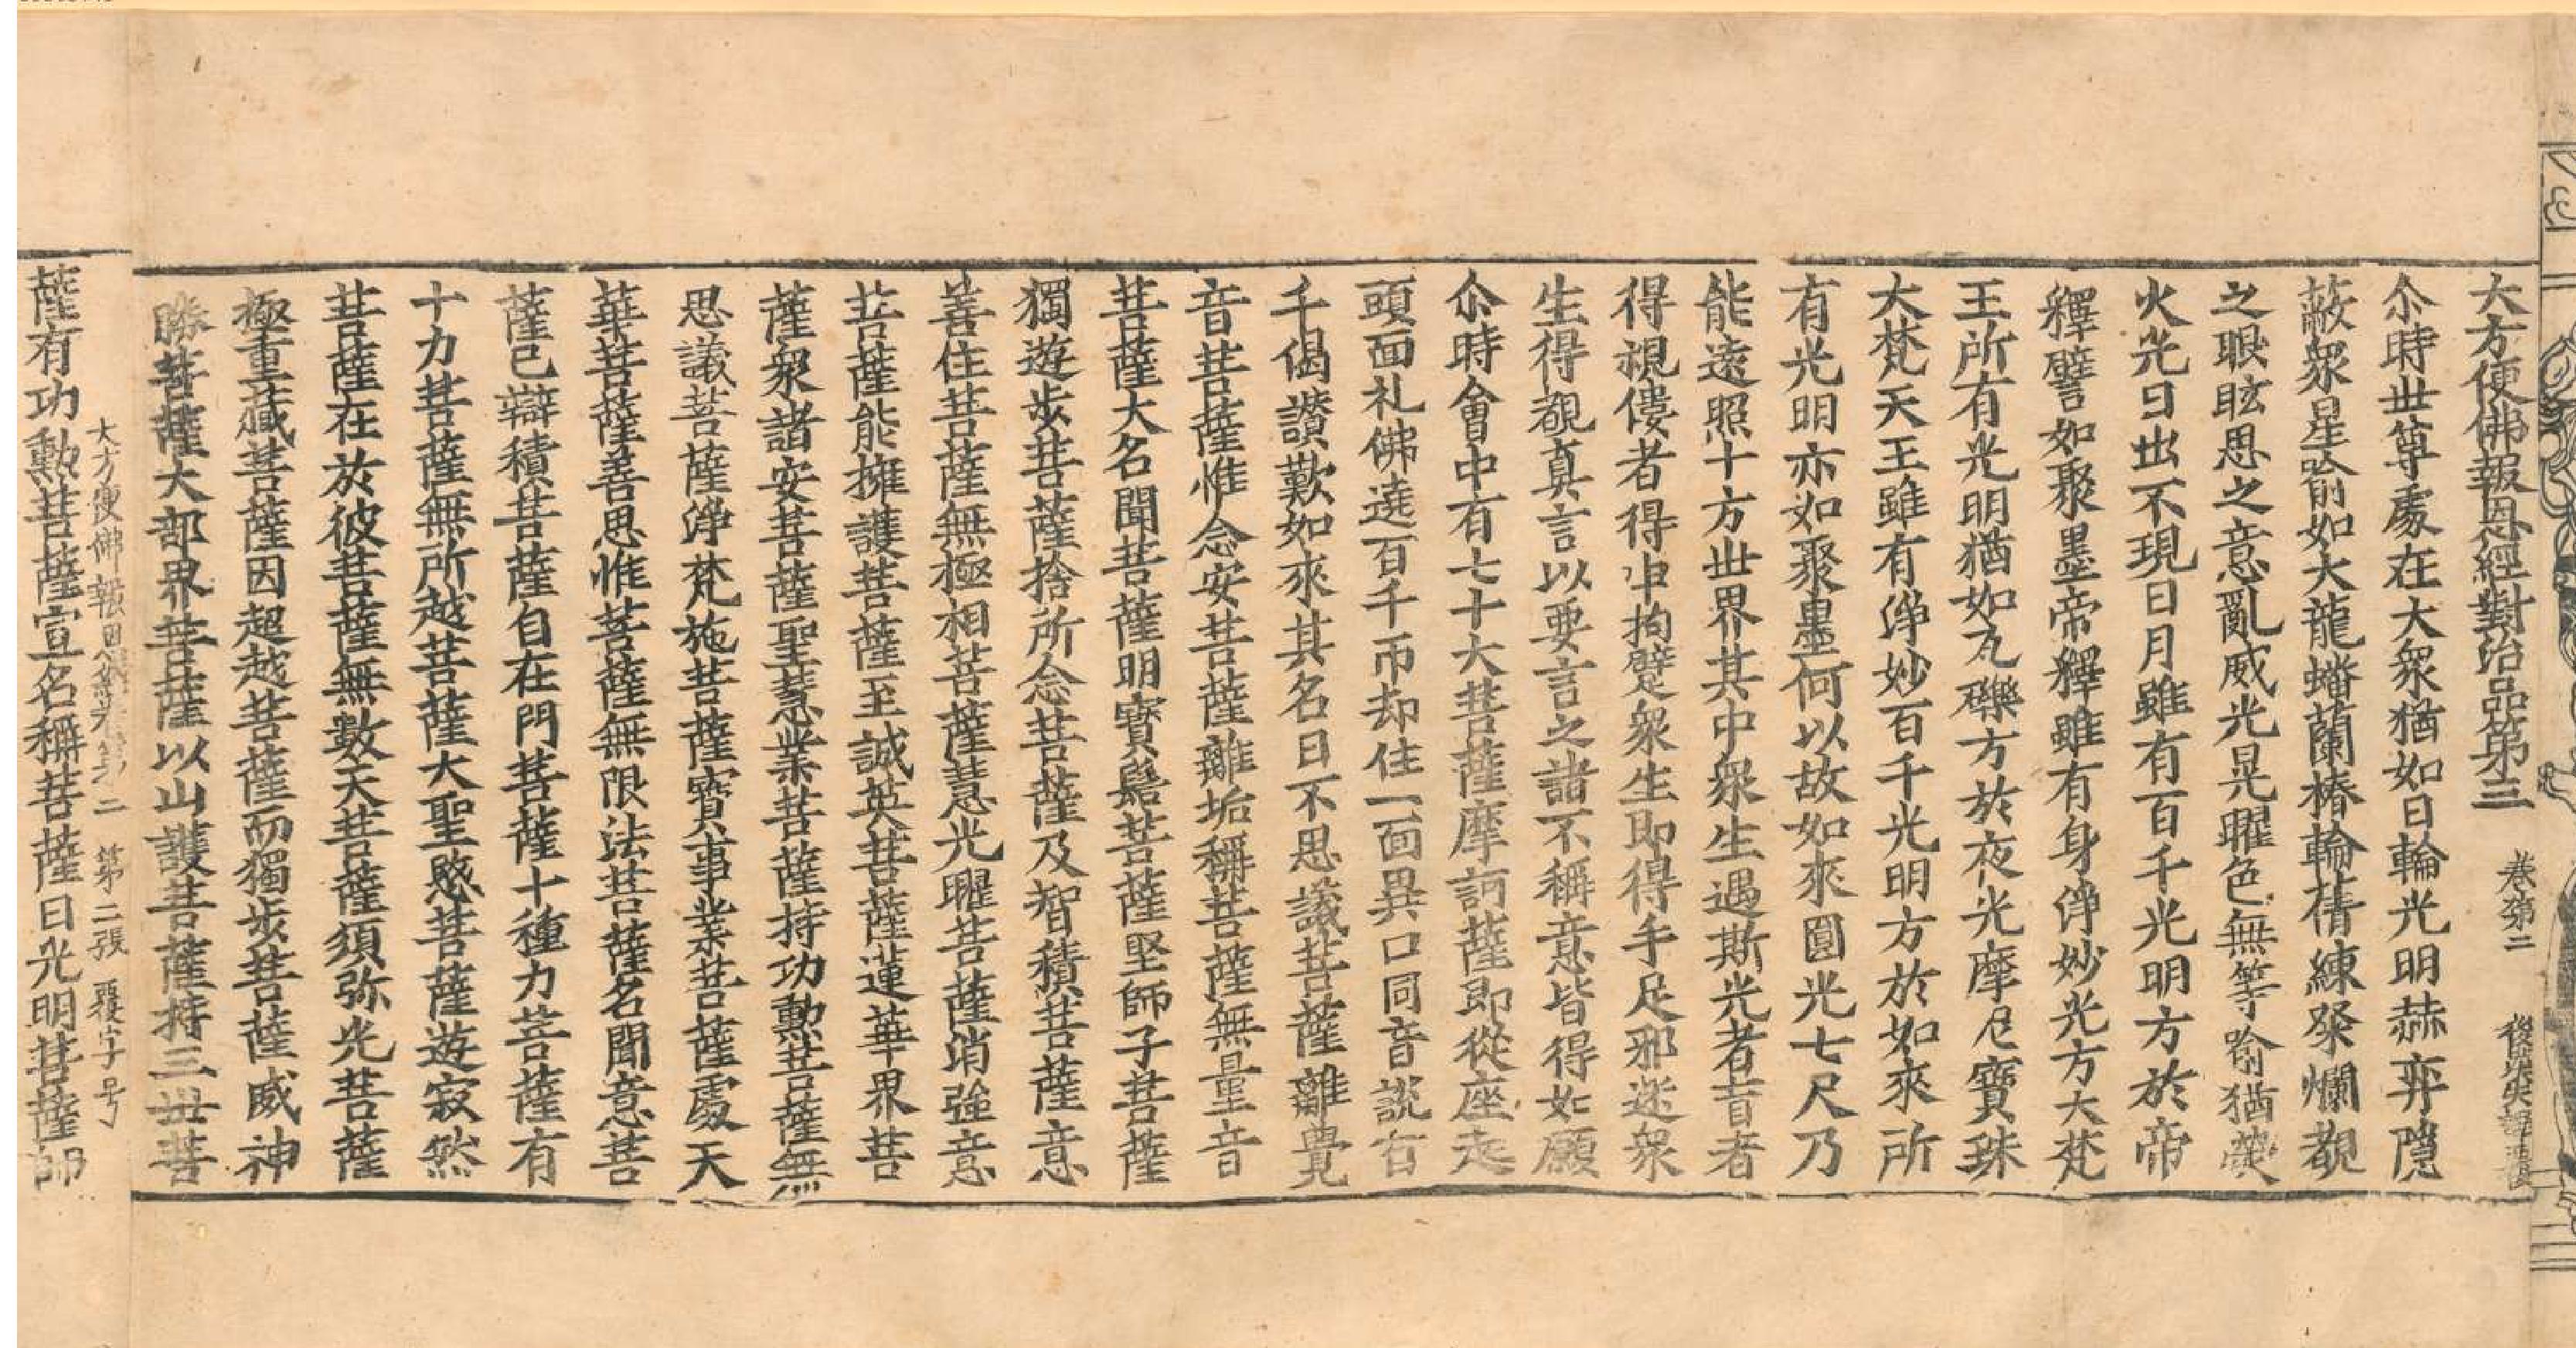 大方便佛報恩經對治品第三　卷第二　後漢失譯
尒時世尊處在大衆猶如日輪光明赫弈隱
蔽衆星喻如大龍蟠蘭椿輪蒨練粲爛覩
之眼眩思之意亂威光晃曜色無等喻猶
火光日出不現日月雖有百千光明方於帝
釋譬如聚墨帝釋雖有身淨妙光方大梵
王所有光明猶如瓦礫方於夜光摩尼寶珠
大梵天王雖有淨妙百千光明方於如來所
有光明亦如聚墨何以故如來圓光七尺乃
能遠照十方世界其中衆生遇斯光者盲者
得視僂者得申拘躄衆生即得手足邪迷衆
生得覩真言以要言之諸不稱意皆得如願
尒時會中有七十大菩薩摩訶薩即從座起
頭面礼佛遶百千帀却住一面異口同音說百
千偈讚歎如來其名曰不思議菩薩離覺
音菩薩惟念安菩薩離垢稱菩薩無量音
菩薩大名聞菩薩明寶髻菩薩堅師子菩薩
獨遊步菩薩捨所念菩薩及智積菩薩意
善住菩薩無極相菩薩慧光曜菩薩消強意
菩薩能擁護菩薩至誠英菩薩蓮華界菩
薩衆諸安菩薩聖慧業菩薩持功勲菩薩無
思議菩薩淨梵施菩薩寶事業菩薩處天
華菩薩善思惟菩薩無限法菩薩名聞意菩
薩已辯積菩薩自在門菩薩十種力菩薩有
十力菩薩無所越菩薩大聖愍菩薩遊寂然
菩薩在於彼菩薩無數天菩薩須弥光菩薩
極重藏菩薩因超越菩薩而獨步菩薩威神
勝菩薩大部界菩薩以山護菩薩持三世菩
大方便佛報恩經卷第二　第二張　覆字号
薩有功勲菩薩宣名稱菩薩日光明菩薩師